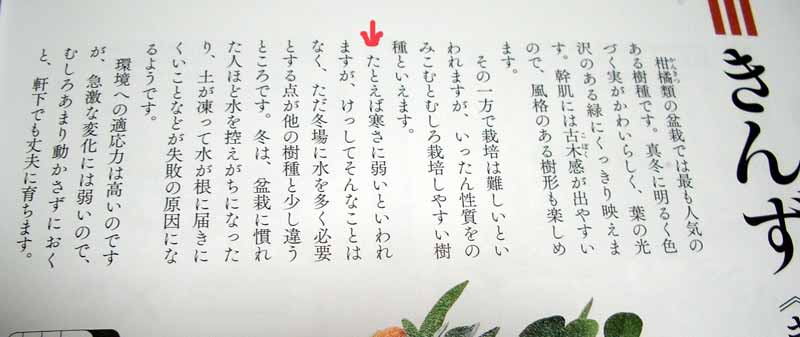 きんず
柑橘類の盆栽では最も人気の
かんきつ
ある樹種です。真冬に明るく色
づく実がかわいらしく、葉の光
沢のある緑にくっきり映えま
す。幹肌には古木感が出やすい
こぼく
ので、風格のある樹形も楽しめ
ます。
その一方で栽培は難しいとい
われますが、いったん性質をの
みこむとむしろ栽培しやすい樹
種といえます。
たとえば寒さに弱いといわれ
ますが、けっしてそんなことは
なく、ただ冬場に水を多く必要
とする点が他の樹種と少し違う
ところです。冬は、盆栽に慣れ
た人ほど水を控えがちになった
り、土が凍って水が根に届きに
くいことなどが失敗の原因にな
るようです。
環境への適応力は高いのです
が、急激な変化には弱いので、
むしろあまり動かさずにおく
と、軒下でも丈夫に育ちます。